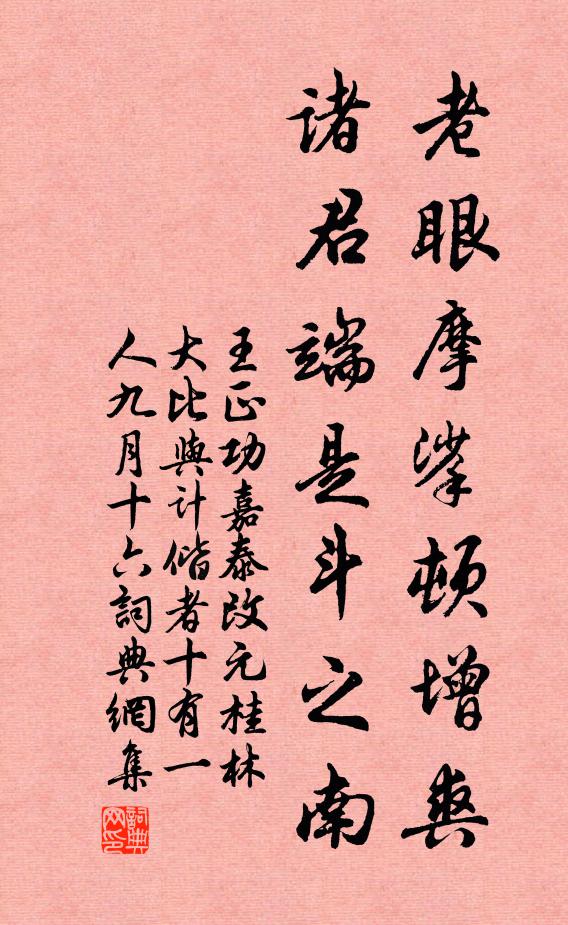 老眼摩挲顿增爽
诸君端是斗之南
王正功嘉泰改元桂林
大比與计偕者十有一
人九月十六詞典網集
詞典网印